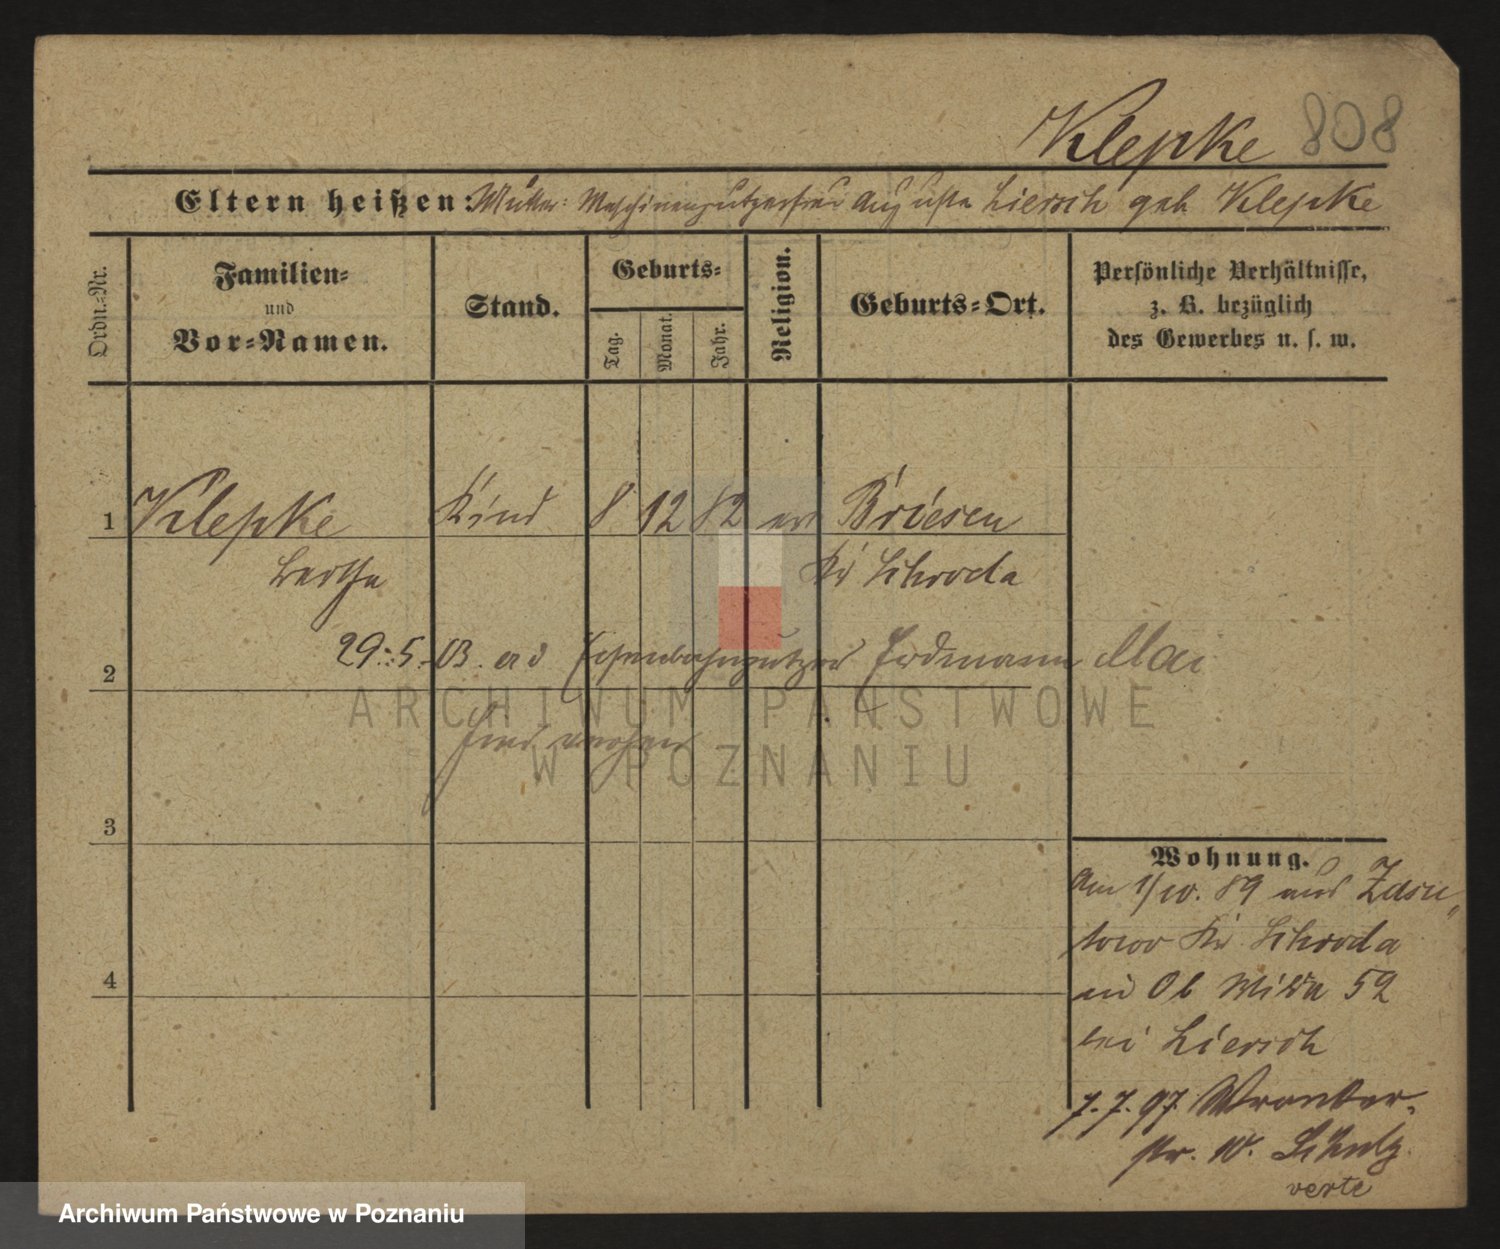 Klepke 808
Eltern heißen: Mutter: Maschinenputzerfrau Augusta Liersch geb Klepke
Ordn.-Nr.
Familien-
und
Vor-Namen.
Stand.
Geburts-
Tag.
Monat.
Jahr.
Religion.
Geburts-Ort.
Persönliche Verhältnisse,
z. B. bezüglich
des Gewerbes u. s. w.
1 Klepke Kind 8 12 82 ev Briesen
Bertha Kr Schroda
29.5.03. Eisenbahnputzer Erdmann Mai
2
3
4
Wohnung.
Am 1/10. 89 aus Zasu„
towo Kr Schroda
Ob Wilda 52
bei Liersch
7.7.97 Wronker-
str. 10. Schulz
verte
ARCHIWUM PAŃSTWOWE
W POZNANIU
Archiwum Państwowe w Poznaniu